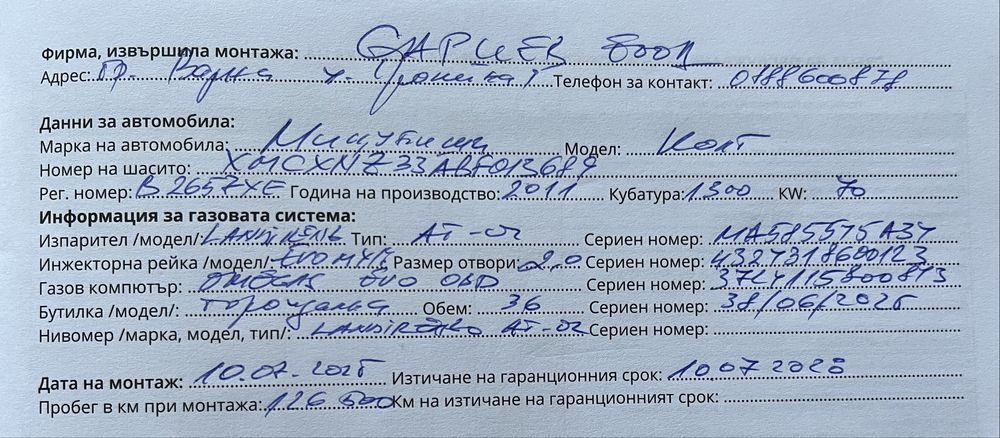 Фирма, извършила монтажа: ЕООД
Адрес: гр. Варна ул. Телефон за контакт: 0888600878
Данни за автомобила:
Марка на автомобила: Мицубиши Модел: Колт
Номер на шасито: XMCXNZ33ABF013689
Рег. номер: В2657ХЕ Година на производство: 2011 Кубатура: 1300 KW: 70
Информация за газовата система:
Изпарител /модел/: LANDIRENZO Тип: AT-02 Сериен номер: MA585575A37
Инжекторна рейка /модел/: Размер отвори: 2,0 Сериен номер:
Газов компютър: EVO OBD Сериен номер:
Бутилка /модел/: Обем: 36 Сериен номер: 38/06/2025
Нивомер /марка, модел, тип/: LANDIRENZO AT-02 Сериен номер:
Дата на монтаж: 10.07.2025 Изтичане на гаранционния срок: 10.07 2028
Пробег в км при монтажа: 126 500 Км на изтичане на гаранционният срок: